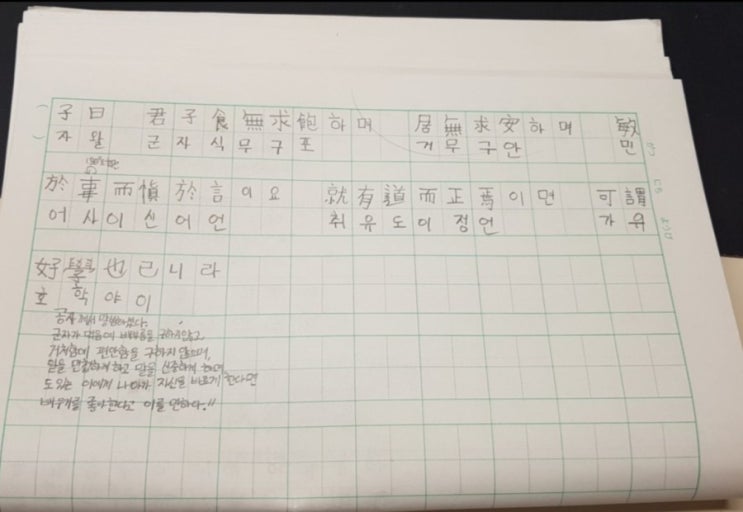 子曰 君子食無求飽하며 居無求安하며 敏
자왈 군자식무구포 거무구안 민
於事而慎於言이요 就有道而正焉이면 可謂
어사이신어언 취유도이정언 가위
好學也已니라
호학야이
공자께서 말씀하셨다.
군자가 먹음에 배부름을 구하지않고
거처함에 편안함을 구하지 않으며,
일을 민첩하게하고 말을 신중하게 하며
도있는 이에게 나아가 자신을 바르게 한다면
배우기를 좋아한다고 이를 만하다.!!